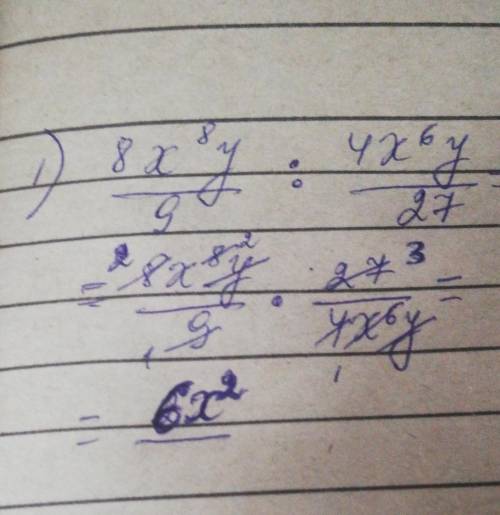 1) 8x⁸y/9 : 4x⁶y/27 =
= ² 8x⁸y/9 ² · 27³/4x⁶y =
= 6x²